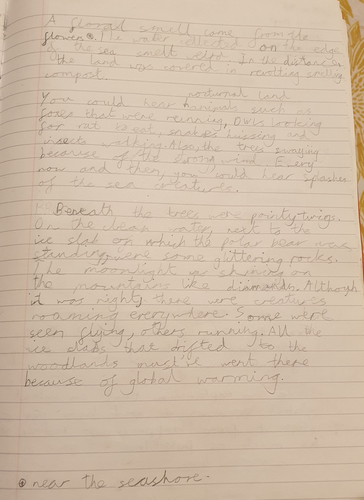 A floral smell came from the
flower⊕. The water effected on the edge
of the sea smelt salty. In the distance,
the land was covered in revolting smelling
compost.
nocturnal land
You could hear animals such as
foxes that were running, owls looking
for rats to eat, snakes hissing and
insects walking. Also, the trees swaying
because of the strong wind. Every
now and then, you would hear splashes
of the sea creatures.
Beneath the trees were pointy twigs.
On the clean water, next to the
ice slab on which the polar bear was
standing, were some glittering rocks.
The moonlight was shining on
the mountains like diamonds. Although
it was night, there were creatures
roaming everywhere. Some were
seen flying, others running. All the
ice slabs that drifted to the
woodlands went there
because of global warming.
⊕ near the seashore.